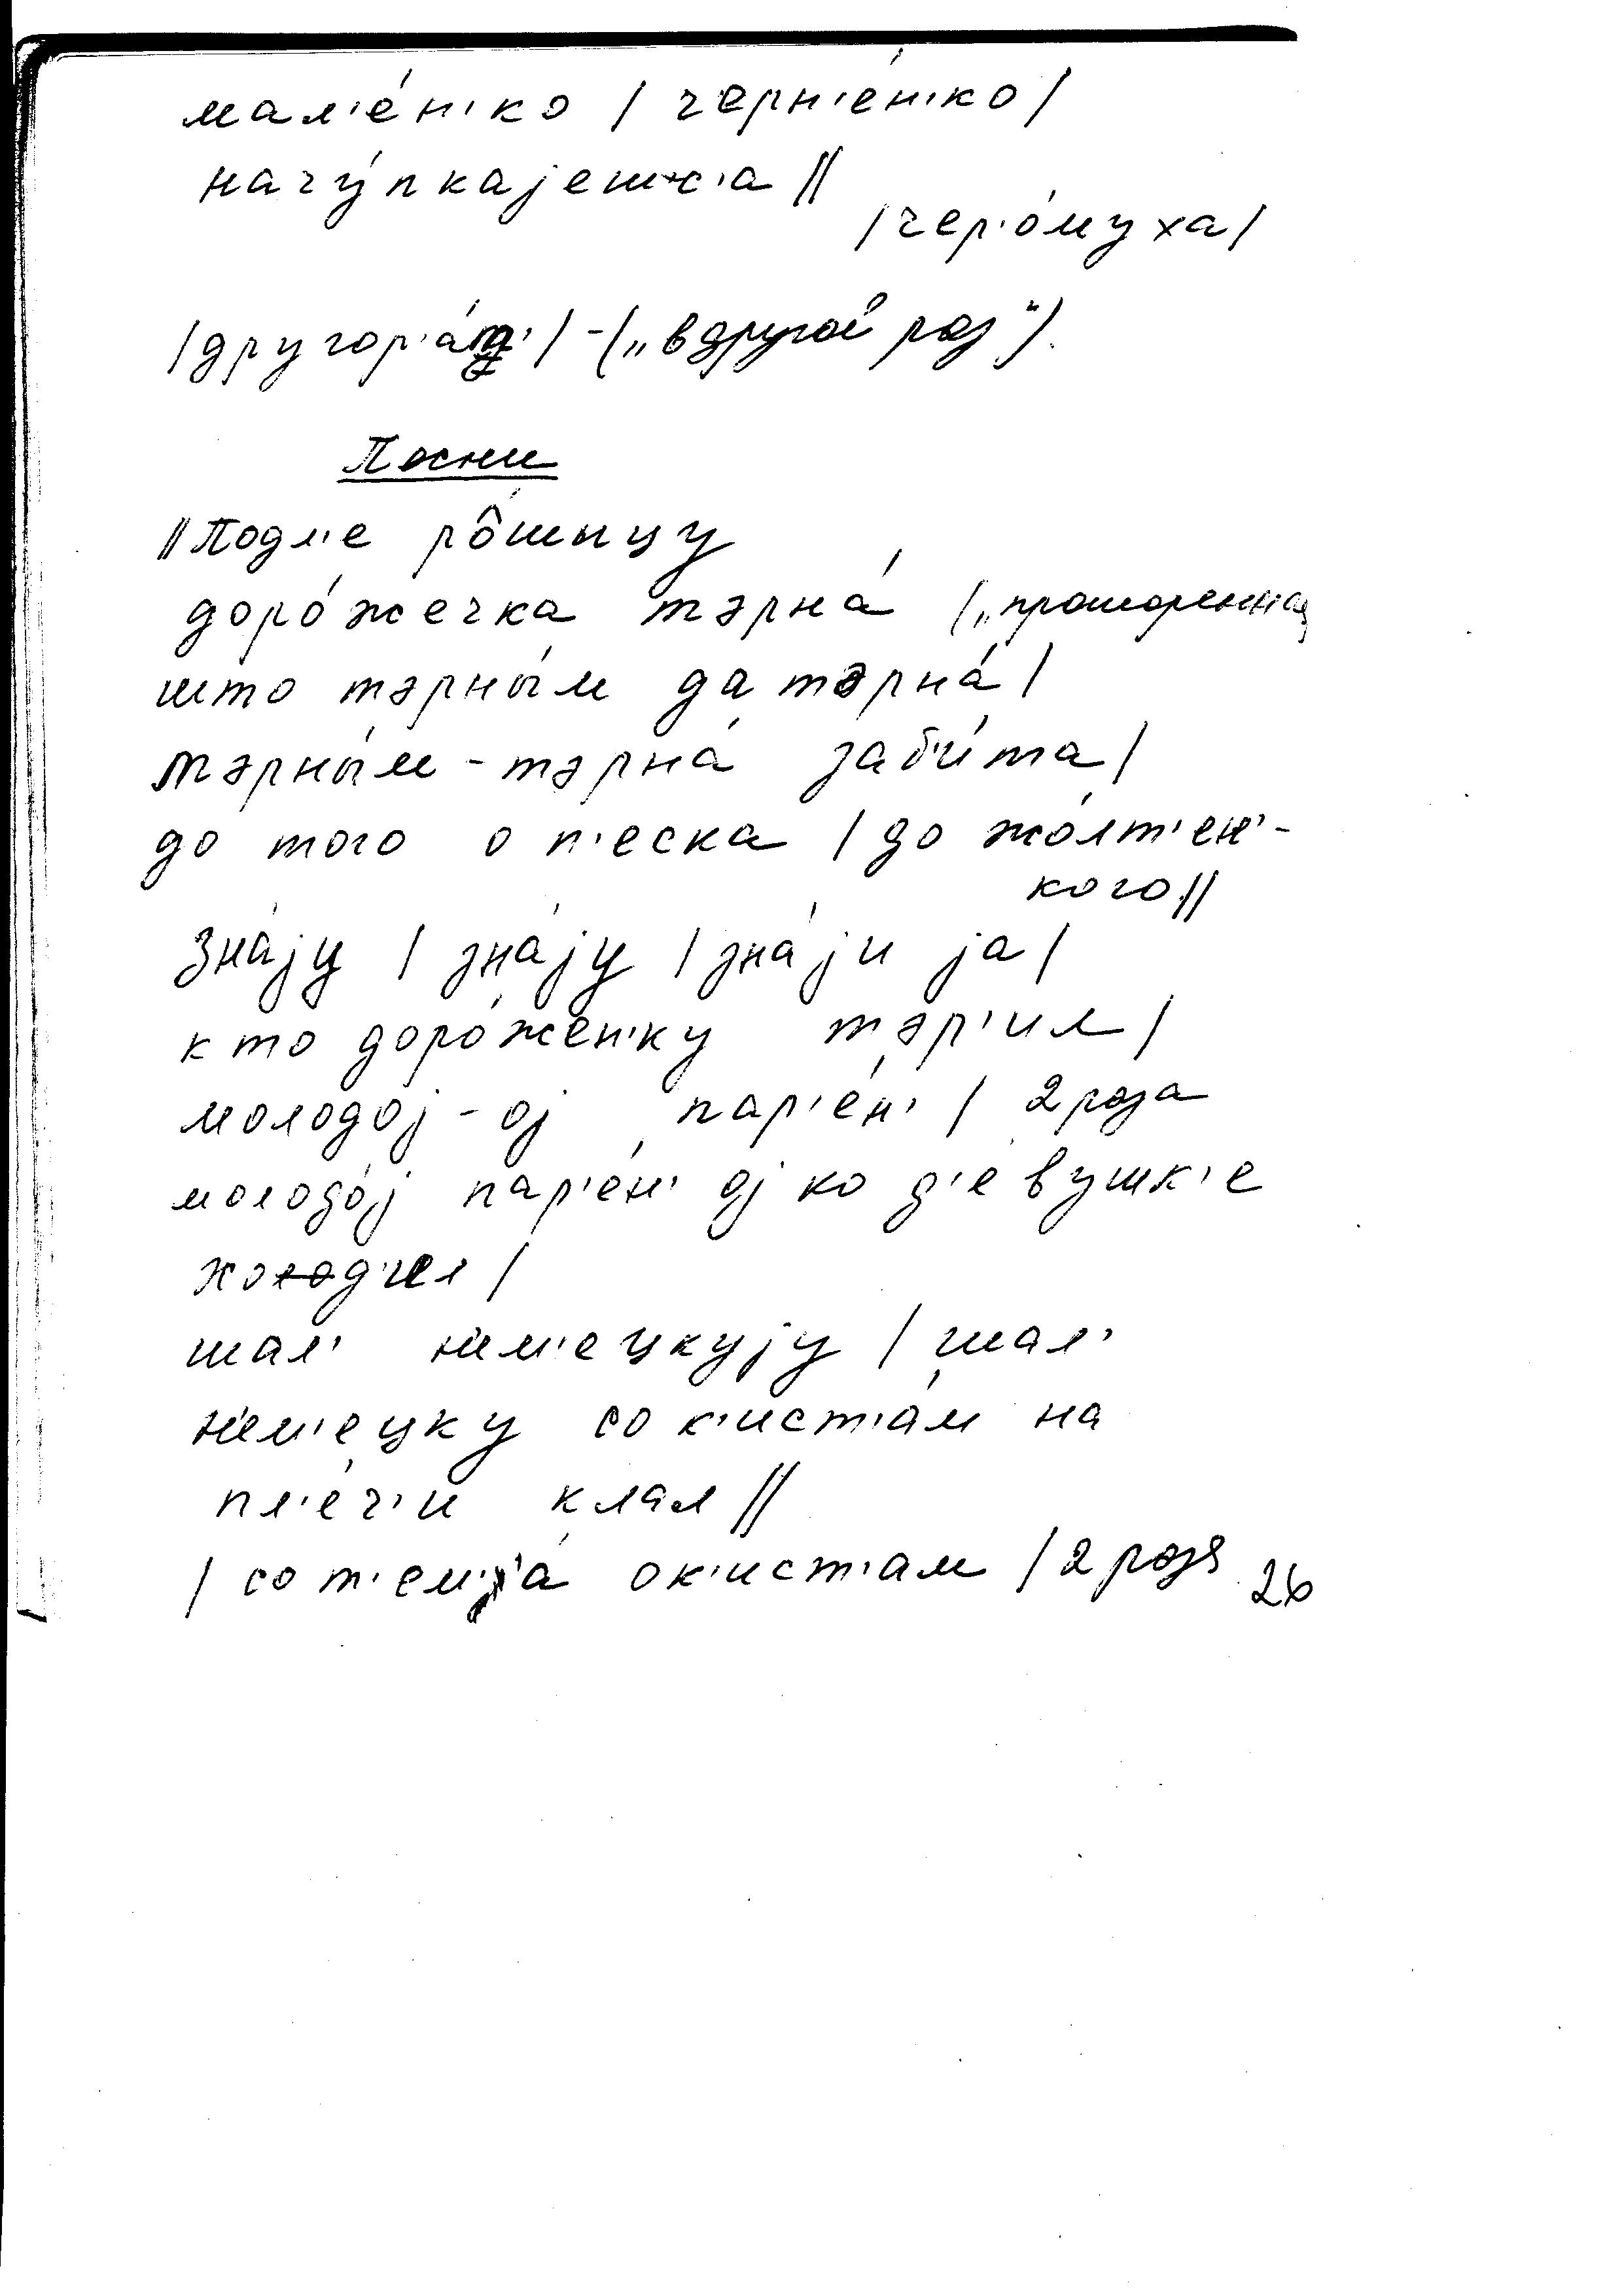 мал'е́н'ко / черн'е́н'ко /
начу́пкајешс'а //
/чер'о́муха/
/другор'а́д'/ - („в другой раз“).
Песни
// Подл'е рôшыцу
доро́жечка тэрна́ („проторенная
што тэрны́м да тэрна́ /
тэрны́м - тэрна́ заб'и́та /
до того о п'еска / до жо́лт'ен'-
кого //
зна́јy / зна́јy / зна́ји ја /
кто доро́жен'ку тэр'ил /
молодој - ој пар'е́н' / 2 раза
молодо́ј пар'е́н' ој ко д'е́вушк'е
ход'ил /
шал' н'им'ецкују / шал'
н'ем'ецку со к'ист'а́м на
пл'е́ч'и клал //
/ со т'ем'а́ ок'ист'ам / 2 раза
26